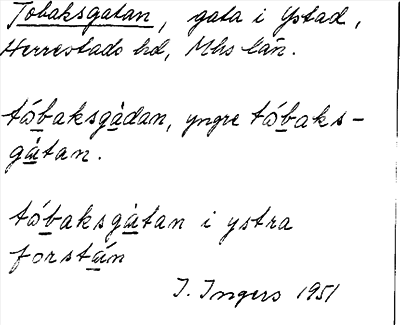 Tobaksgatan, gata i Ystad,
Herrestads hd, Mhs län.
tóbaksgàdan, yngre tóbaks-
gàtan.
tóbaksgàtan i ystra
forstán
I. Ingers 1951